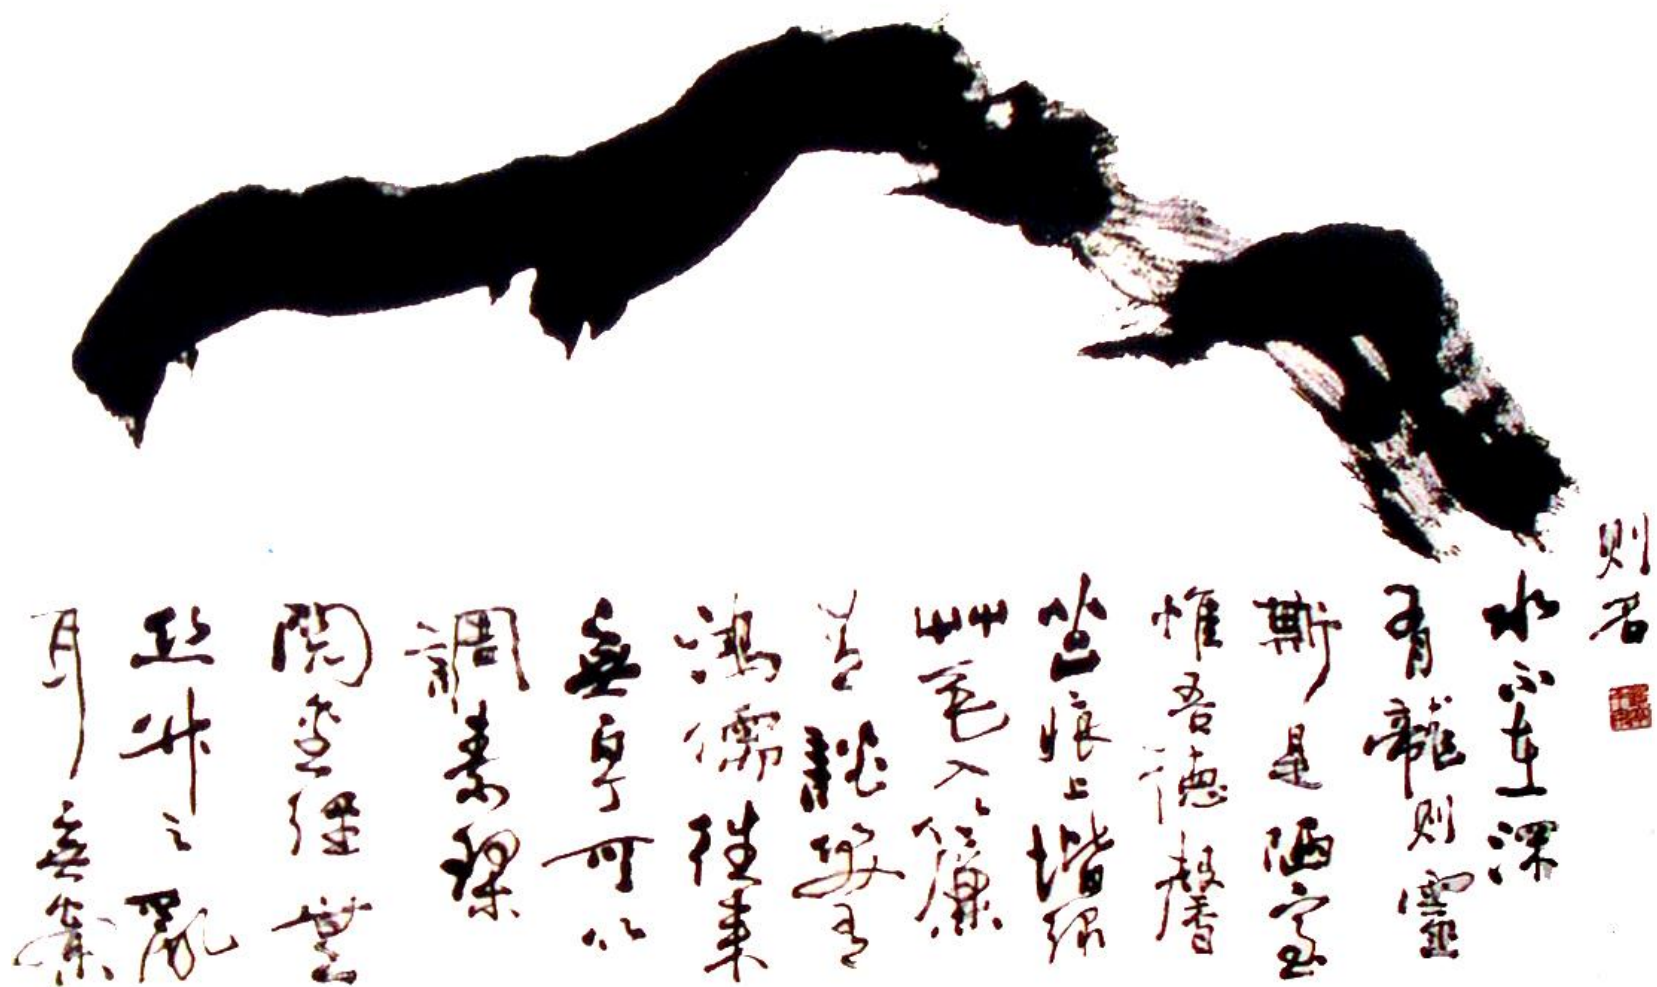 则名
水不在深
有龍则靈
斯是陋室
惟吾德馨
苔痕上堦緑
艸色入簾
青談笑有
鴻儒往来
無白丁可以
調素琴
閲金經無
丝竹之亂
耳無案